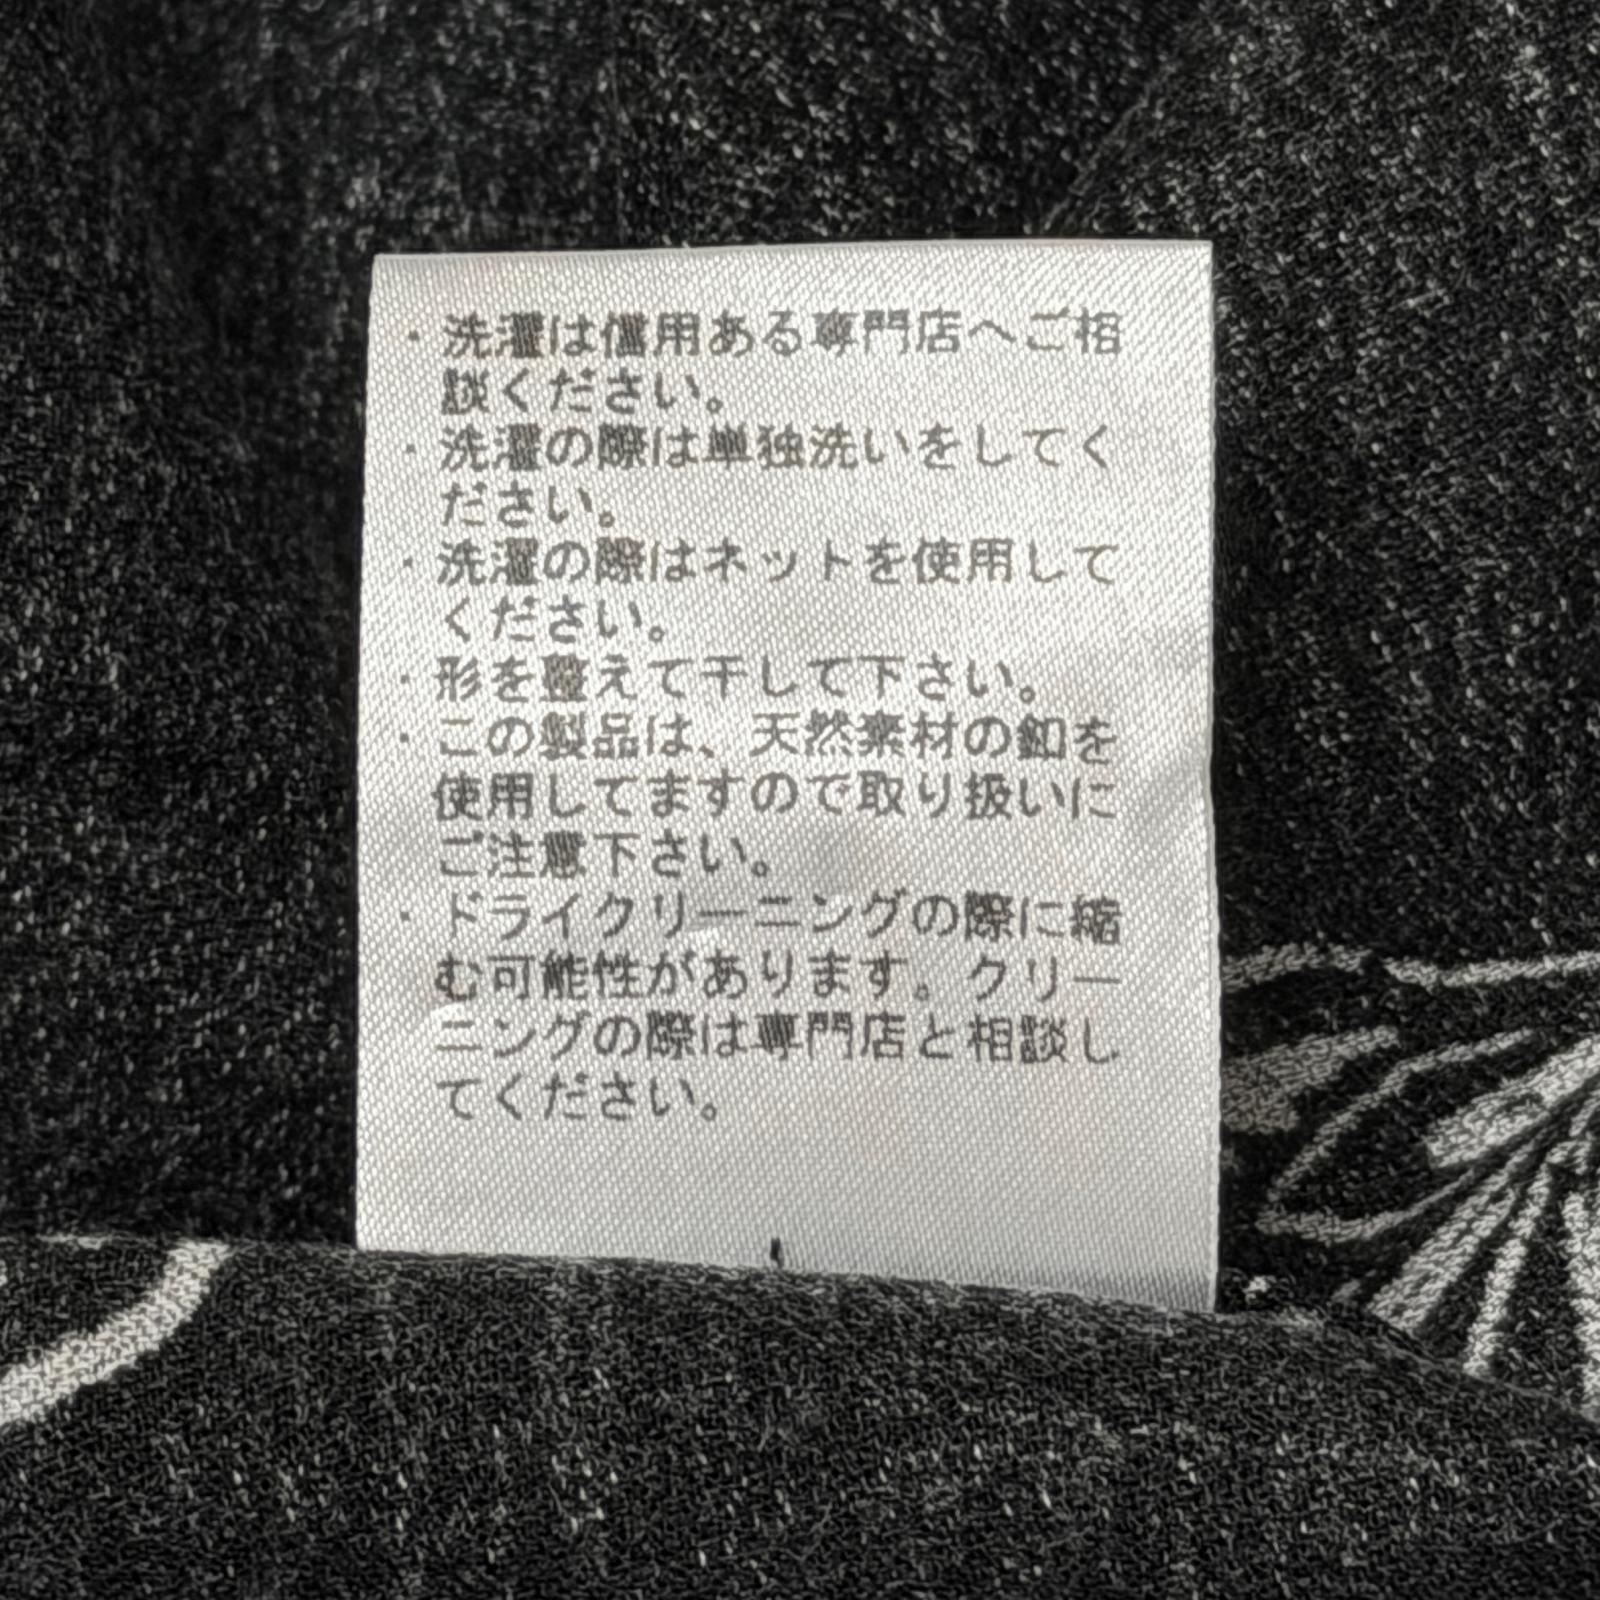 ・洗濯は信用ある専門店へご相
談ください。
・洗濯の際は単独洗いをしてく
ださい。
・洗濯の際はネットを使用して
ください。
・形を整えて干して下さい。
・この製品は、天然素材の釦を
使用してますので取り扱いに
ご注意下さい。
・ドライクリーニングの際に縮
む可能性があります。クリー
ニングの際は専門店と相談し
てください。